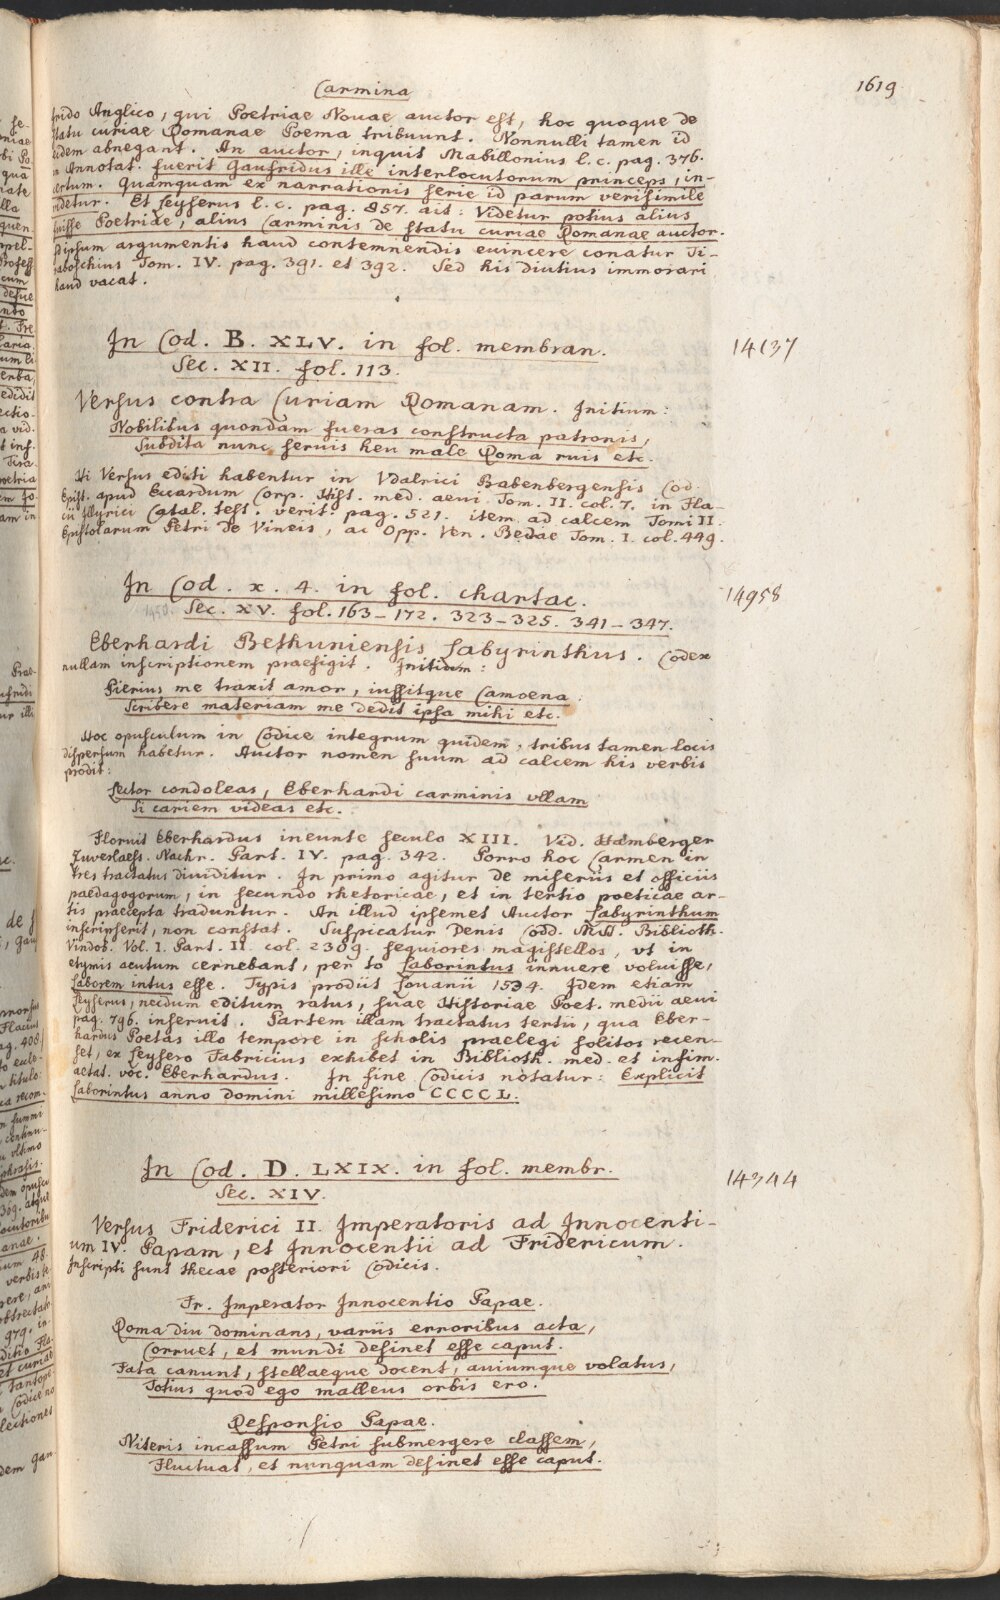 Carmina
1619
frido Anglico, qui Poetriae Nouae auctor est, hoc quoque de
statu curiae Romanae Poema tribuunt. Nonnulli tamen id
eidem abnegant. An auctor, inquit Mabillonius l. c. pag. 376.
in Annotat. fuerit Gaufridus ille interlocutorum princeps, in-
certum. Quamquam ex narrationis serie id parum verisimile
videtur. Et Leyserus l. c. pag. 857. ait: Videtur potius alius
fuisse Poetriae, alius Carminis de statu curiae Romanae auctor.
Id ipsum argumentis haud contemnendis euincere conatur Ti-
raboschius Tom. IV. pag. 391. et 392. Sed his diutius immorari
haud vacat.
In Cod. B. XLV. in fol. membran.
14137
Sec. XII. fol. 113.
Versus contra Curiam Romanam. Initium:
Nobilibus quondam fueras constructa patronis,
Subdita nunc seruis heu male Roma ruis etc.
Hi Versus editi habentur in Vdalrici Babenbergensis Cod.
Epist. apud Eccardum Corp. Hist. med. aeui Tom. II. col. 7. in Fla-
cii Illyrici Catal. test. verit. pag. 521. item ad calcem Tomi II.
Epistolarum Petri de Vineis, ac Opp. Ven. Bedae Tom. I. col. 449.
In Cod. x. 4. in fol. chartac.
14958
Sec. XV. fol. 163-172. 323-325. 341-347.
Eberhardi Bethuniensis Labyrinthus. Codex
nullam inscriptionem praefigit. Initium:
Pierius me traxit amor, iussitque Camoena
Scribere materiam me dedit ipsa mihi etc.
Hoc opusculum in Codice integrum quidem, tribus tamen locis
dispersum habetur. Auctor nomen suum ad calcem his verbis
prodit:
Lector condoleas, Eberhardi carminis vllam
Si cariem videas etc.
Floruit Eberhardus ineunte seculo XIII. Vid. Hamberger
Zuverlaess. Nachr. Part. IV. pag. 342. Porro hoc Carmen in
tres tractatus diuiditur. In primo agitur de miseriis et officiis
paedagogorum, in secundo rhetoricae, et in tertio poeticae ar-
tis praecepta traduntur. An illud ipsemet Auctor Labyrinthum
inscripserit, non constat. Suspicatur Denis Codd. MSS. Biblioth.
Vindob. Vol. I. Part. II. col. 2309. sequiores magistellos, vt in
etymis acutum cernebant, per to Laborintus innuere voluisse,
Laborem intus esse. Typis prodiit Louanii 1534. Idem etiam
Leyserus, necdum editum ratus, suae Historiae Poet. medii aeui
pag. 796. inseruit. Partem illam tractatus tertii, qua Eber-
hardus Poetas illo tempore in scholis praelegi solitos recen-
set, ex Leysero Fabricius exhibet in Biblioth. med. et infim.
aetat. voc. Eberhardus. In fine Codicis notatur: Explicit
Laborintus anno domini millesimo CCCCL.
In Cod. D. LXIX. in fol. membr.
14344
Sec. XIV.
Versus Friderici II. Imperatoris ad Innocenti-
um IV. Papam, et Innocentii ad Fridericum.
Inscripti sunt thecae posteriori Codicis.
Fr. Imperator Innocentio Papae.
Roma diu dominans, variis erroribus acta,
Corruet, et mundi desinet esse caput.
Fata canunt, stellaeque docent, auiumque volatus,
Totius quod ego malleus orbis ero.
Responsio Papae.
Niteris incassum Petri submergere classem,
Fluctuat, et nunquam desinet esse caput.